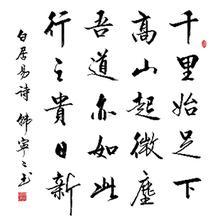 千里始足下
高山起微塵
吾道亦如此
行之貴日新
白居易詩